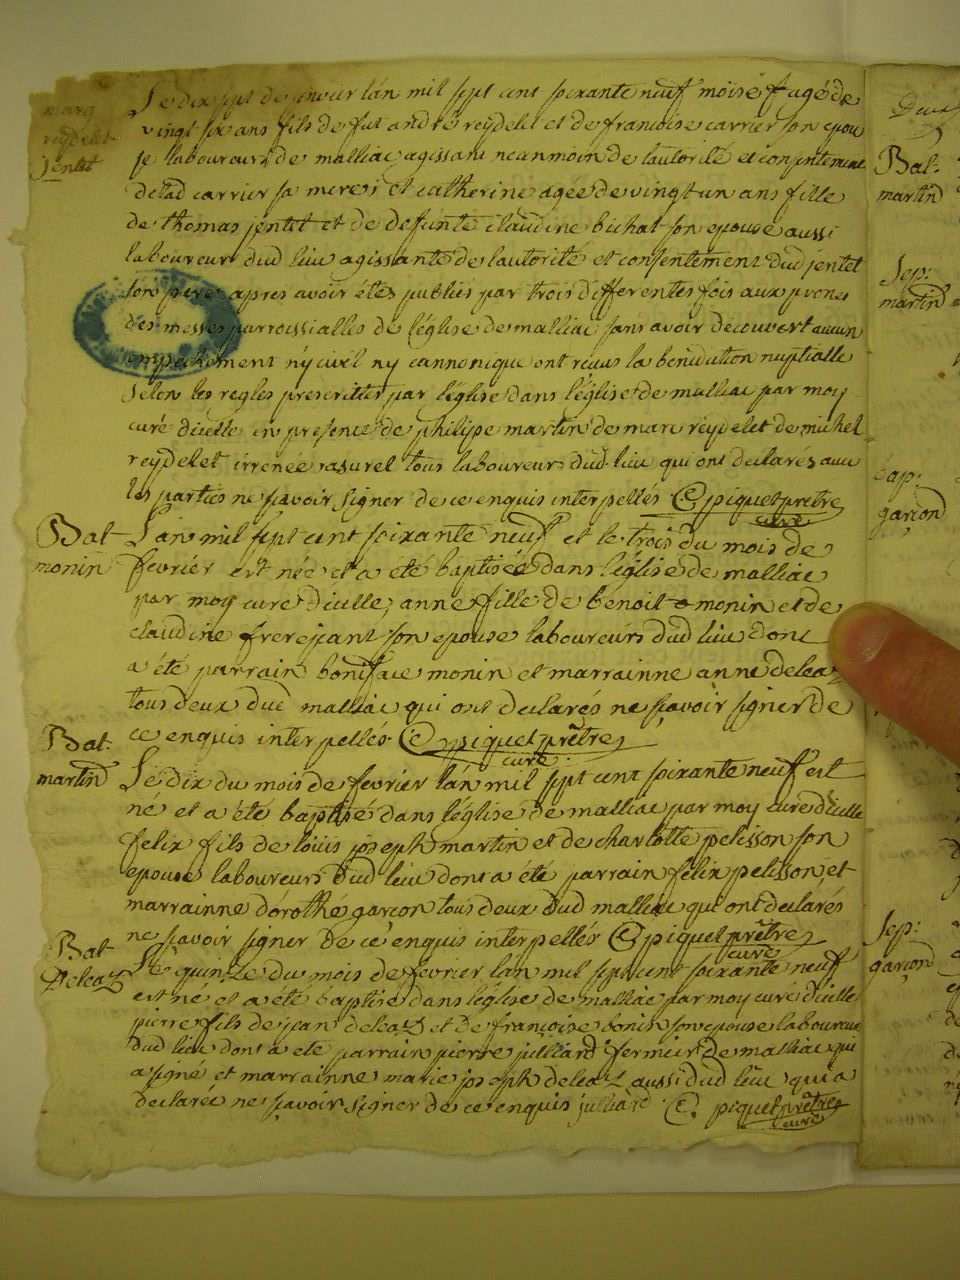 marg
reydelet
jentet
Le dix sept de janvier l'an mil sept cent soixante neuf moise agé de
vingt six ans fils de fut andré reydelet et de francoise carrier son epou
se laboureurs de malliac agissant neanmoin de l'autorité et consentement
de lad carrier sa mere et catherine agée de vingt un ans fille
de thomas jentet et de defunte claudine buhat son epouse aussi
laboureurs dud lieu agissante de l'autorité et consentement dud jentet
son pere apres avoir étés publiés par trois differentes fois aux prones
des messes parroissialles de l'église de malliac sans avoir decouvert aucun
empechement ny civil ny cannonique ont reçus la bénédiction nuptialle
selon les regles prescrittes par l'église dans l'église de malliac par moy
curé d'icelle en presence de philipe martin de marc reydelet de michel
reydelet irrenée rasurel tous laboureurs dud lieu qui ont declarés avec
les parties ne sçavoir signer de ce enquis interpellés piquet prêtre
curé
Bat
monin
L'an mil sept cent soixante neuf et le trois du mois de
fevrier est née et a été baptisée dans l'église de malliac
par moy curé d'icelle, anne fille de benoit monin et de
claudine frerejant son epouse laboureurs dud lieu dont
a été parrain boniface monin et marrainne anne deleaz
tous deux dud malliac qui ont declarés ne sçavoir signer de
ce enquis interpellés piquet prêtre
curé
Bat
martin
Le dix du mois de fevrier l'an mil sept cent soixante neuf est
né et a été baptisé dans l'église de malliac par moy curé d'icelle
felix fils de louis joseph martin et de charlotte pelisson son
epouse laboureurs dud lieu dont a été parrain félix pelisson et
marrainne dorothé garçon tous deux dud malliac qui ont declarés
ne sçavoir signer de ce enquis interpellés piquet prêtre
curé
Bat
Deleaz
Le quinze du mois de fevrier l'an mil sept cent soixante neuf
est né et a été baptisé dans l'église de malliac par moy curé d'icelle
pierre fils de jean deleaz et de françoise bonin son epouse laboureur
dud lieu dont a eté parrain pierre julliard fermier de malliac qui
a signé et marrainne marie joseph deleaz aussi dud lieu qui a
declarée ne sçavoir signer de ce enquis julliard piquet prêtre
curé
Deux
Bat.
martin
Sep:
martin
Cap:
garçon
Sep:
garçon